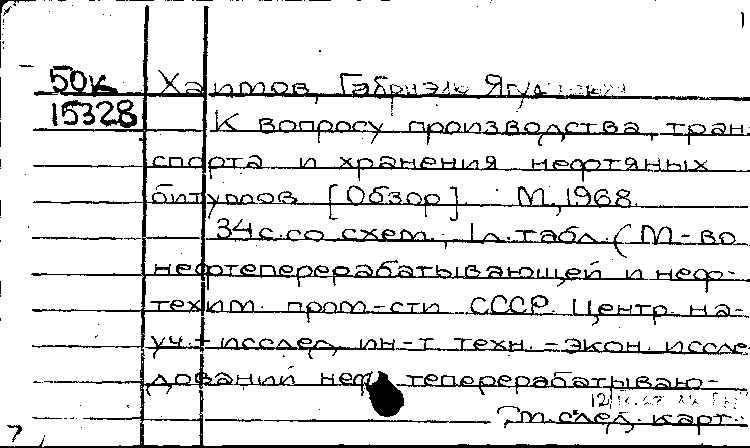 50к Хаимов, Габриэль Ягудаевич
15328 К вопросу производства, тран-
спорта и хранения нефтяных
битумов [Обзор]. М., 1968.
34 с. со схем., 1 л. табл. (М-во
нефтеперерабатывающей и неф-
техим. пром-сти СССР. Центр. на-
уч.-исслед. ин-т техн.-экон. иссле-
дований нефтеперерабатываю-
См. след. карт.
7